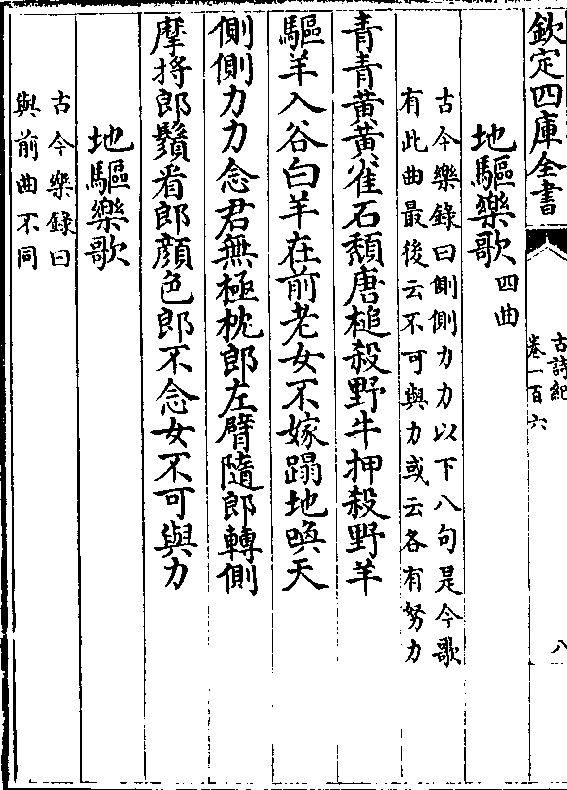 欽定四庫全書
古詩紀
卷一百六
八
地驅樂歌四曲
古今樂錄曰側側力力以下八句是今歌
有此曲最後云不可與力或云各有努力
青青黃黃雀石頹唐槌殺野牛押殺野羊
驅羊入谷白羊在前老女不嫁蹋地喚天
側側力力念君無極枕郎左臂隨郎轉側
摩捋郎鬚看郎顏色郎不念女不可與力
地驅樂歌
古今樂錄曰
與前曲不同